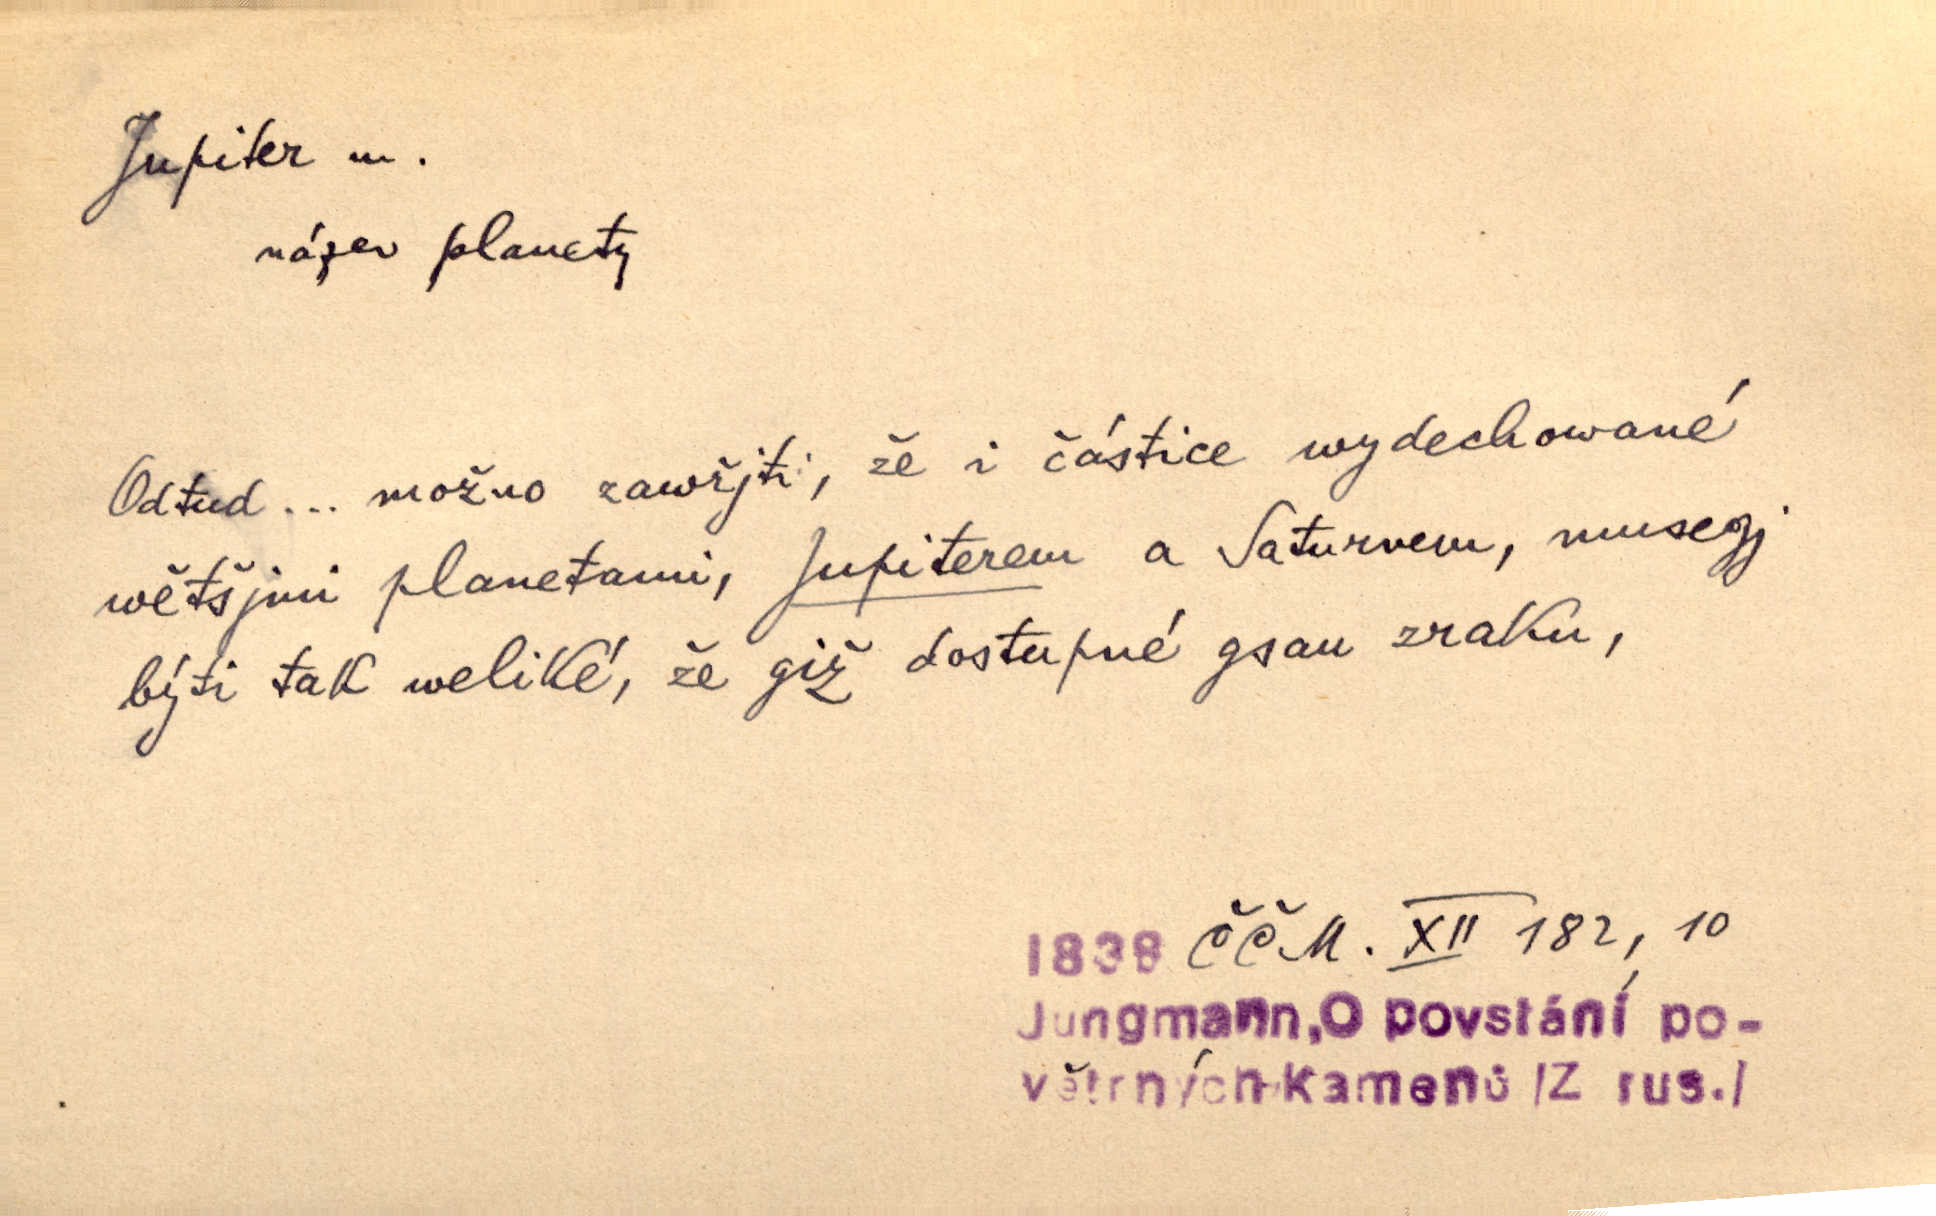 Jupiter m.
název planety
Odtud... možno zawřjti, že i částice wydechowané
wětšjmi planetami, Jupiterem a Saturnem, musegj
býti tak weliké, že giž dostupné gsau zraku,
1838 ČČM. XII 182, 10
Jungmann,O povstání po-
větrných kamenů /Z rus./